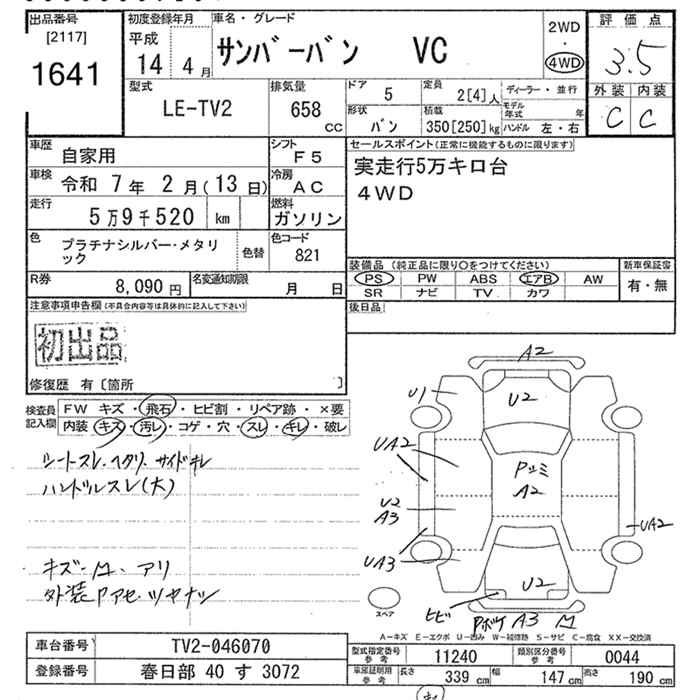 出品番号 初度登録年月 車名・グレード
[2117] 1641 平成 14 4月 サンバーバン VC 2WD・4WD
評価点 3.5
外装 内装
C C
型式 LE-TV2
排気量 658 CC
ドア 5 定員 2[4]人 ディーラー・並行
モデル年式 年
形状 バン 積載 350[250]kg ハンドル 左・右
車歴 自家用 シフト F5
車検 令和 7年 2月(13日) 冷房 AC
走行 5万9千520 km 燃料 ガソリン
色 プラチナシルバー・メタリック 色替 色コード 821
R券 8,090円 名変通知期限 月 日
セールスポイント(正常に機能するものに限ります)
実走行5万キロ台
4WD
装備品 (純正品に限り○をつけてください) 新車保証書
PS PW ABS エアB AW 有・無
SR ナビ TV カワ
後日品
注意事項申告欄(不具合内容等は具体的に記入して下さい)
初出品
修復歴 有〔箇所 〕
検査員記入欄 FW キズ・飛石・ヒビ割・リペア跡・×要
内装・キズ・汚レ・コゲ・穴・スレ・キレ・破レ
シートスレ、ヘタリ、サイドキレ
ハンドルスレ(大)
キズ・M アリ
外装Pアセ・ツヤナシ
A2
U1
U2
UA2
Pツミ
A2
U2
A3
UA2
UA3
U2
ヒビ
Pボケ A3 M
スペア
A-キズ E-エクボ U-凹み W-補修跡 S-サビ C-腐食 XX-交換済
車台番号 TV2-046070
登録番号 春日部 40 す 3072
型式指定番号 参考 11240 類別区分番号 参考 0044
車庫証明用 参考 長さ 339cm 幅 147cm 高さ 190cm